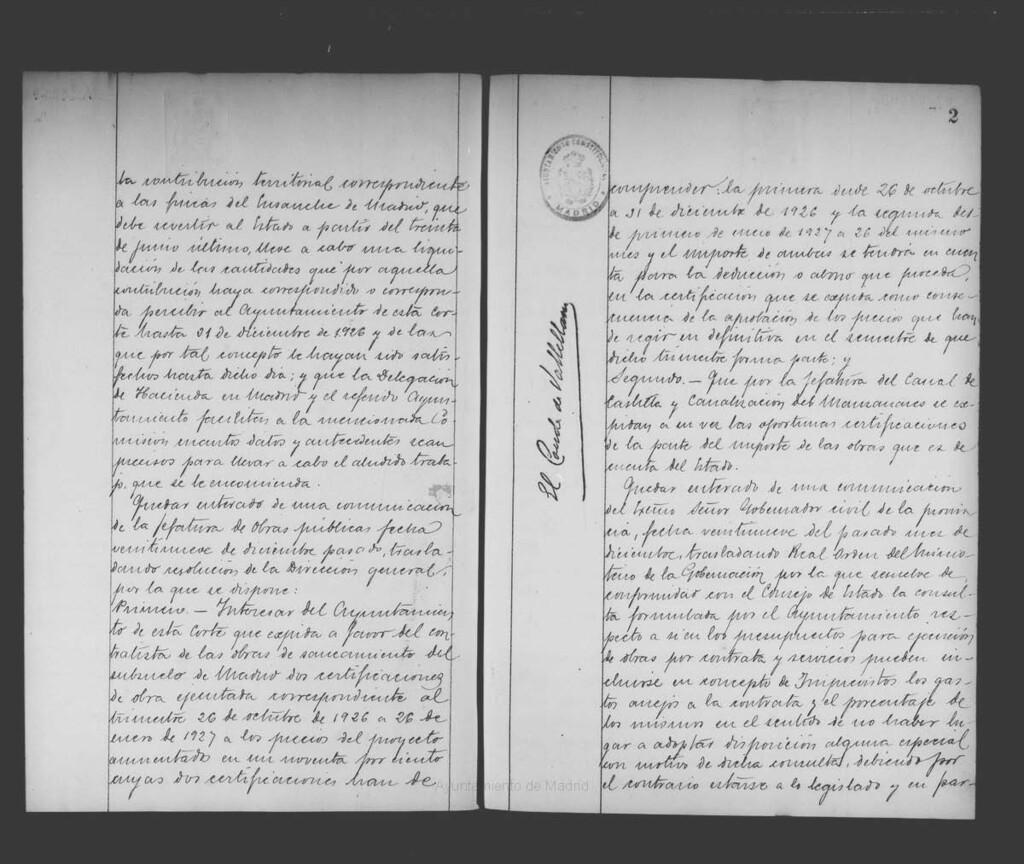 la contribución territorial correspondiente
a las fincas del Ensanche de Madrid, que
debe revertir al Estado a partir del treinta
de junio último, lleve a cabo una liqui-
dación de las cantidades que por aquella
contribución haya correspondido o correspon-
da percibir al Ayuntamiento de esta cor-
te hasta 31 de Diciembre de 1926 y de las
que por tal concepto le hayan sido satis-
fechos hasta dicho dia; y que la Delegación
de Hacienda en Madrid y el referido Ayun-
tamiento faciliten a la mencionada Co-
misión cuantos datos y antecedentes sean
precisos para llevar a cabo el aludido traba-
jo que se le encomienda.
Quedar enterado de una comunicación
de la Jefatura de Obras públicas fecha
veintinueve de diciembre pasado, trasla-
dando resolución de la Dirección general,
por la que se dispone:
Primero. — Interesar del Ayuntamien-
to de esta Corte que expida a favor del con-
tratista de las obras de saneamiento del
subsuelo de Madrid dos certificaciones
de obra ejecutada correspondiente al
trimestre 26 de octubre de 1926 a 26 de
enero de 1927 a los precios del proyecto
aumentado en un noventa por ciento
cuyas dos certificaciones han de
El Conde de Vallellano
AYUNTAMIENTO CONSTITUCIONAL
MADRID
2
comprender: la primera desde 26 de octubre
a 31 de diciembre de 1926 y la segunda des-
de primero de enero de 1927 a 26 del mismo
mes y el importe de ambas se tendrá en cuen-
ta para la deducción o abono que proceda,
en la certificación que se expida como conse-
cuencia de la aprobación de los precios que han
de regir en definitiva en el semestre de que
dicho trimestre forma parte; y
Segundo. — Que por la Jefatura del Canal de
Castilla y Canalización del Manzanares se ex-
pidan a su vez las oportunas certificaciones
de la parte del importe de las obras que es de
cuenta del Estado.
Quedar enterado de una comunicación
del Excmo Señor Gobernador civil de la provin-
cia, fecha veintinueve del pasado mes de
diciembre, trasladando Real Orden del Minis-
terio de la Gobernación por la que resuelve de
conformidad con el Consejo de Estado la consul-
ta formulada por el Ayuntamiento res-
pecto a si en los presupuestos para ejecución
de obras por contrata y servicios pueden in-
cluirse en concepto de Imprevistos los gas-
tos anejos a la contrata y el porcentaje de
los mismos en el sentido de no haber lu-
gar a adoptar disposición alguna especial
con motivo de dicha consulta, debiendo por
el contrario estarse a lo legislado y en par-
Ayuntamiento de Madrid